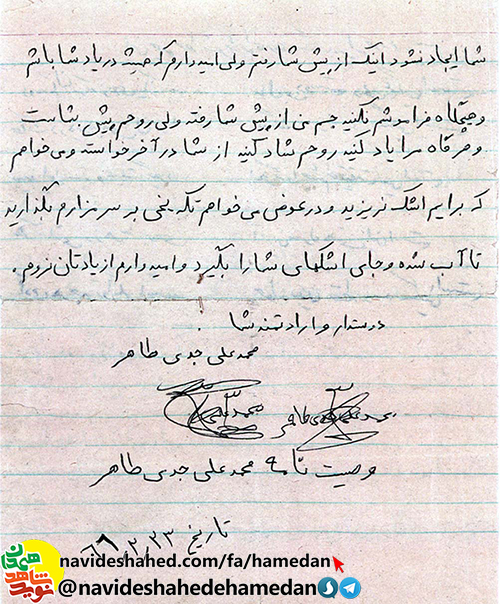 شما ایجاد نشود اینک از پیش شما رفتم ولی امیدوارم که همیشه در یاد شما باشم
و هیچگاه فراموشم نکنید جسم من از پیش شما رفته ولی روحم پیش شماست
و هر گاه مرا یاد کنید روحم شاد کنید از شما در آخر خواسته و می خواهم
که برایم اشک نریزید و در عوض می خواهم تکه یخی بر سر مزارم بگذارید
تا آب شده و جای اشکهای شما را بگیرد و امیدوارم از یادتان نروم.
دوستدار و ارادتمند شما
محمد علی جدی طاهر
محمد علی جدی طاهر محمد علی
وصیت نامه محمد علی جدی طاهر
تاریخ
navideshahed.com/fa/hamedan
@navideshahedehamedan
نوید شاهد همدان